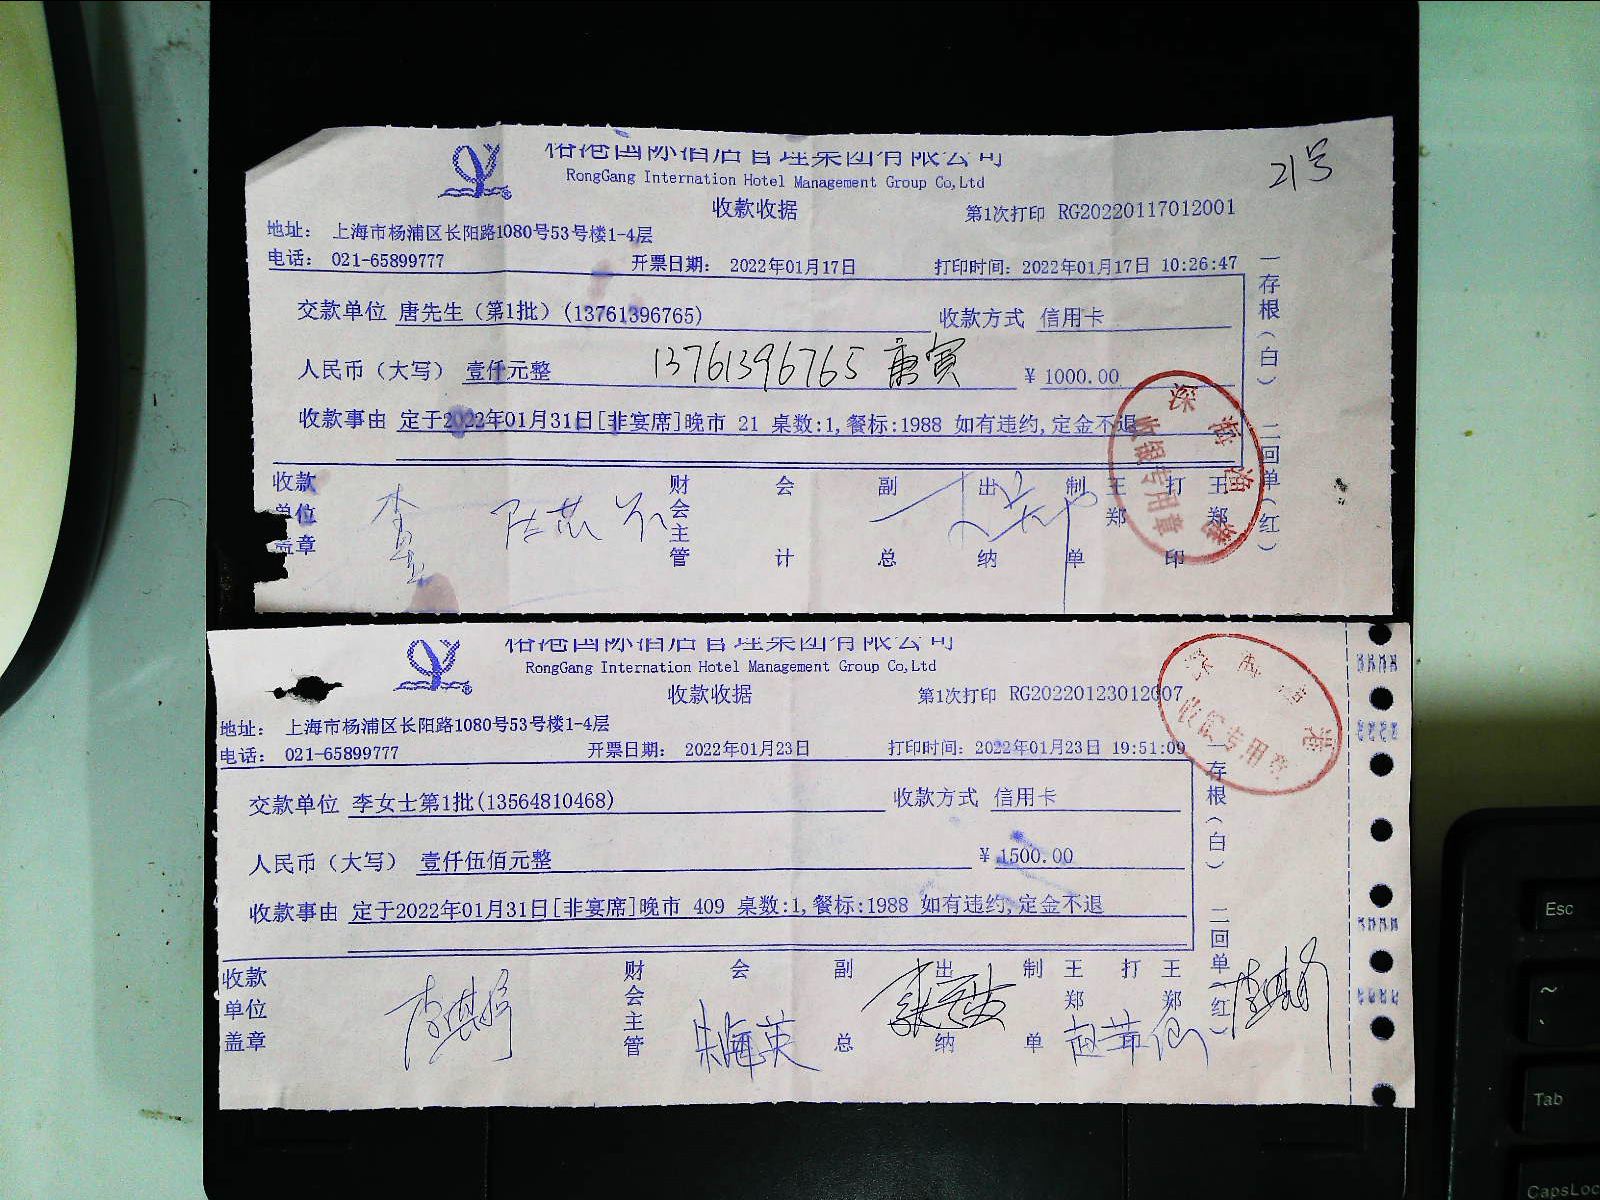 国际酒店管理集团有限公司
RongGang Internation Hotel Management Group Co,Ltd
21号
收款收据
第1次打印 RG20220117012001
地址： 上海市杨浦区长阳路1080号53号楼1-4层
电话： 021-65899777 开票日期： 2022年01月17日 打印时间：2022年01月17日 10:26:47
交款单位 唐先生（第1批）(13761396765) 收款方式 信用卡
人民币（大写） 壹仟元整 13761396765 唐寅 ¥ 1000.00
收款事由 定于2022年01月31日[非宴席]晚市 21 桌数:1,餐标:1988 如有违约,定金不退
收款单位盖章 财会主管 会计 副总 出纳 制单 王郑 打印 王郑
一存根（白） 二回单（红）
深海
专用章
国际酒店管理集团有限公司
RongGang Internation Hotel Management Group Co,Ltd
收款收据
第1次打印 RG20220123012007
地址： 上海市杨浦区长阳路1080号53号楼1-4层
电话： 021-65899777 开票日期： 2022年01月23日 打印时间：2022年01月23日 19:51:09
交款单位 李女士第1批(13564810468) 收款方式 信用卡
人民币（大写） 壹仟伍佰元整 ¥ 1500.00
收款事由 定于2022年01月31日[非宴席]晚市 409 桌数:1,餐标:1988 如有违约,定金不退
收款单位盖章 财会主管 会 朱梅英 副总 出纳 制单 王郑 打 王郑
一存根（白） 二回单（红）
专用章
Esc
~
Tab
CapsLoc